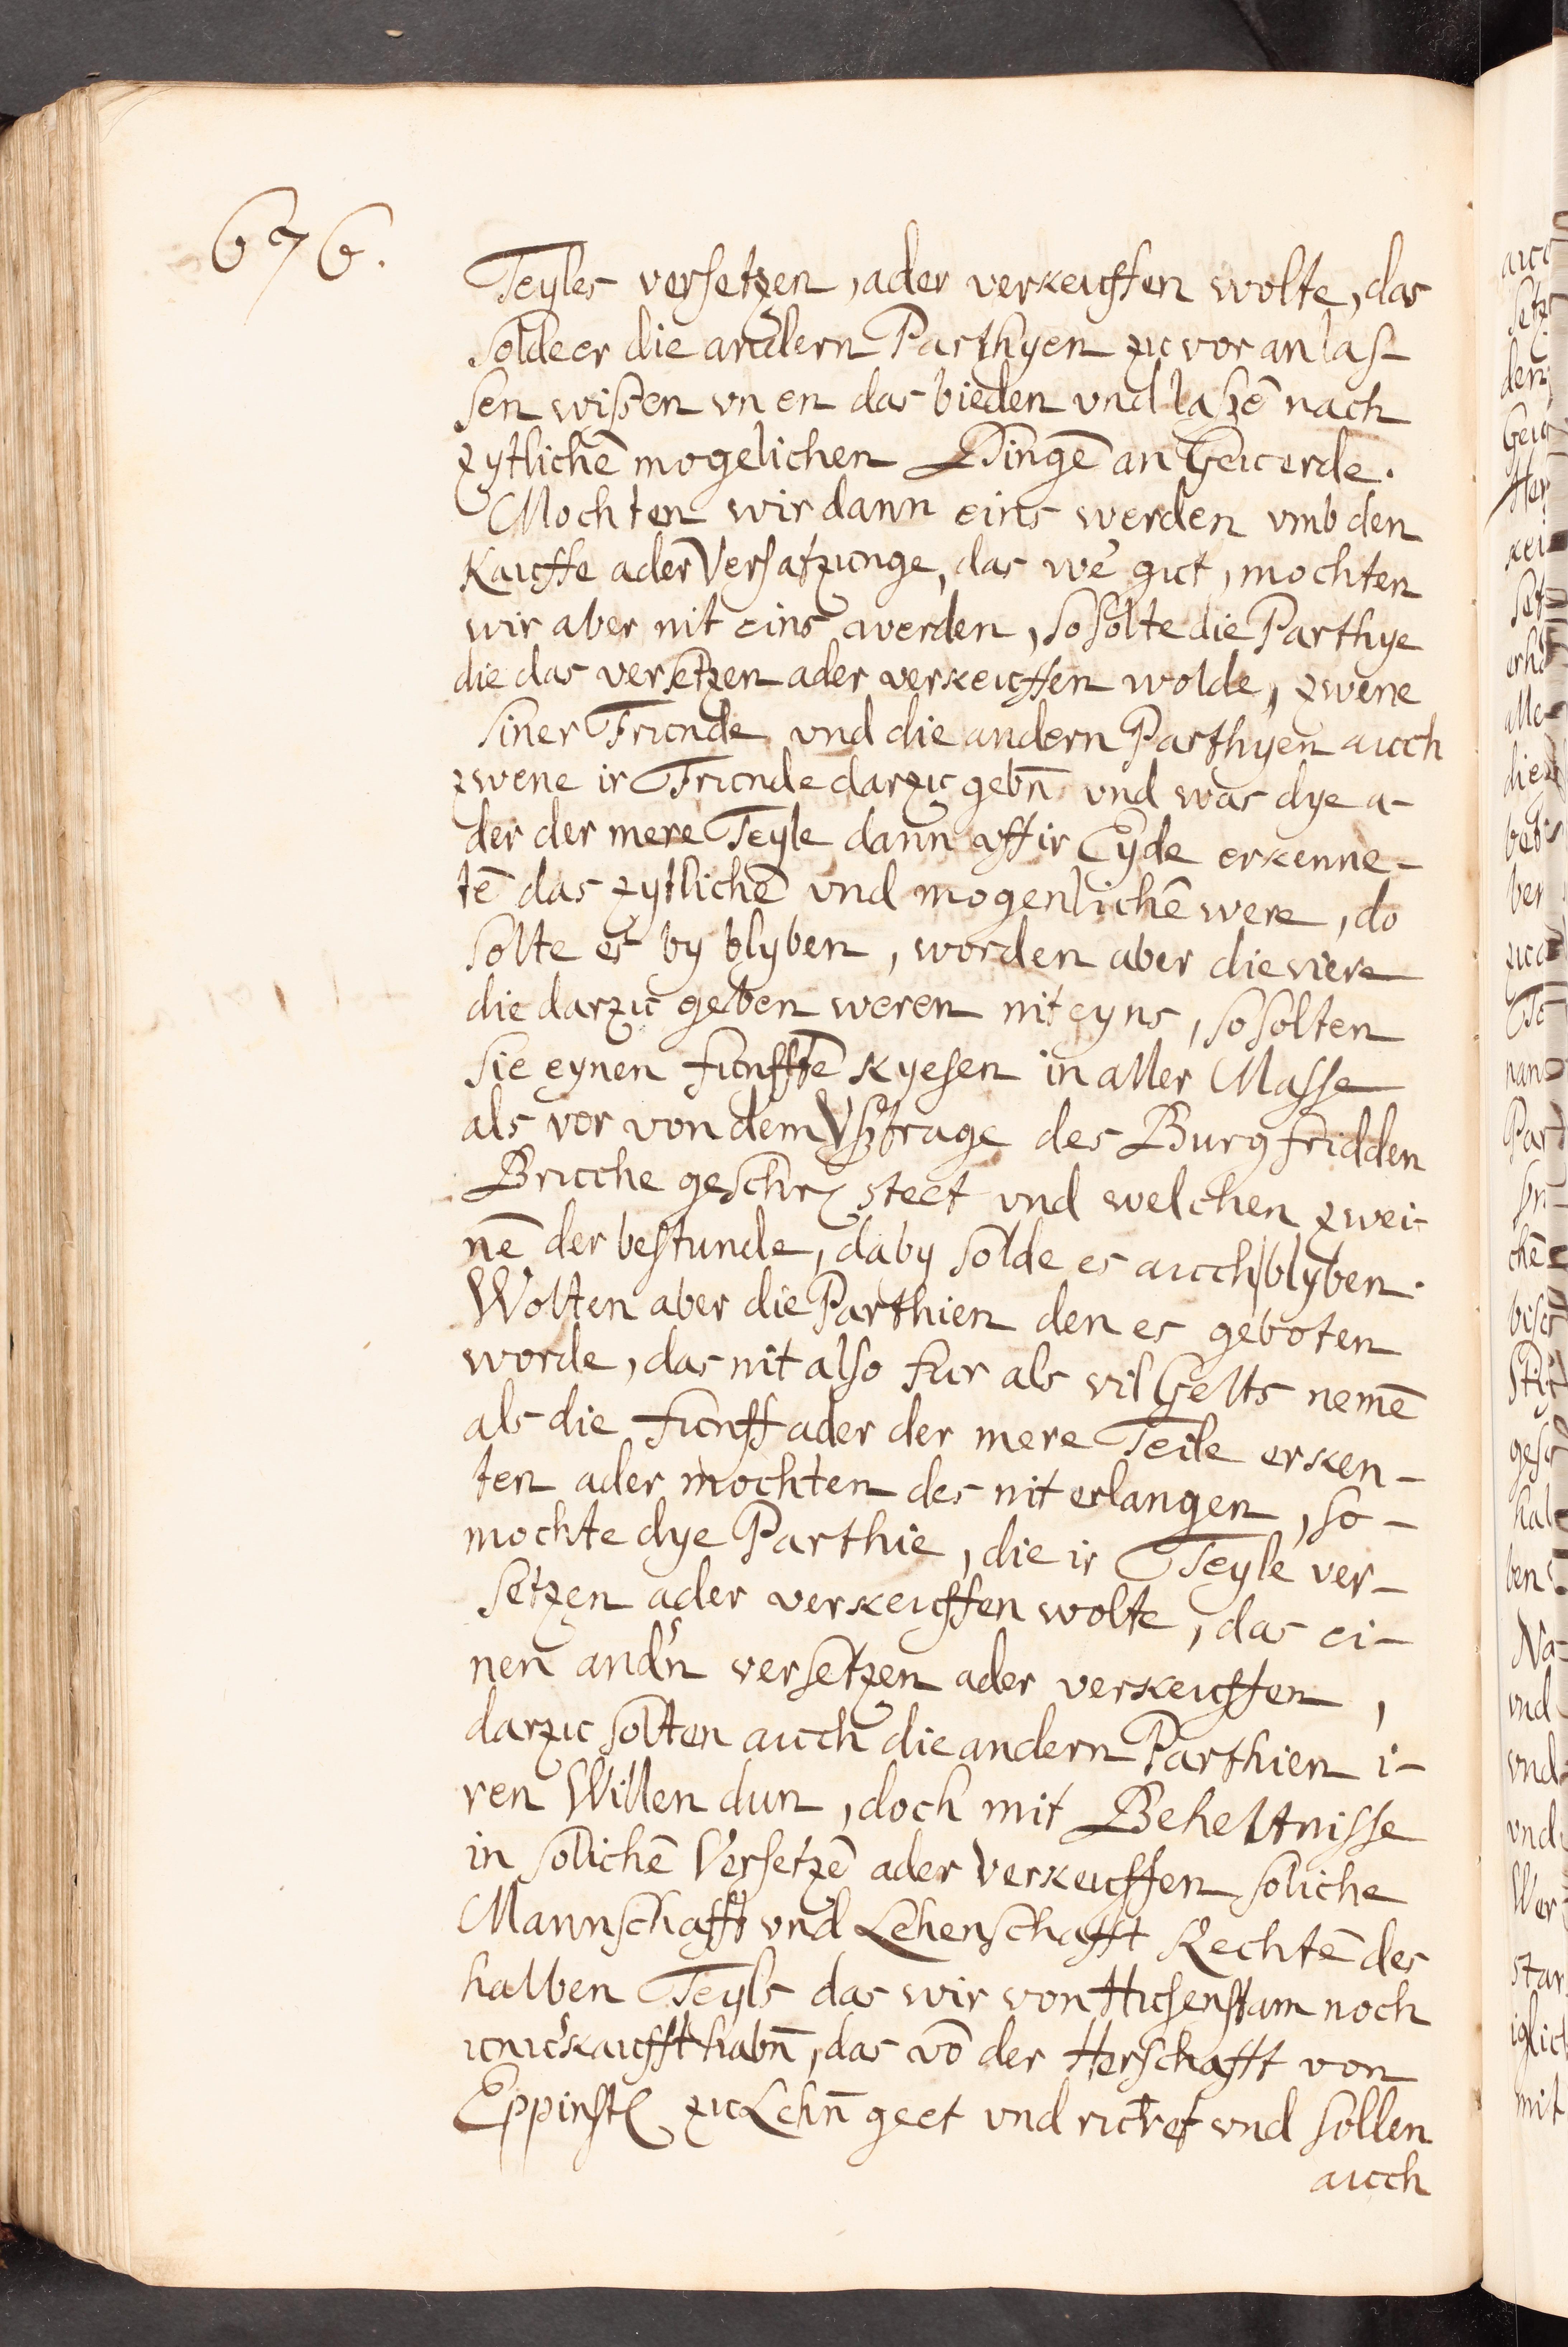 676.
Teyles versetzen, ader verkeuffen wolte, das
solde er die andern Parthyen zu vor an las-
sen wißen vn en das bieden vnd laßē nach
zytlichē mogelichen Dingē an Geuerde.
Mochten wir dann eins werden vmb den
Kauffe ader Versatzunge, das we' gut, mochten
wir aber nit eins werden, so solte die Parthye
die das versetzen ader verkeuffen wolde, zwene
siner Frunde vnd die andern Parthyen auch
zwene ir Frunde darzu gebn̄ vnd was dye a-
der der mere Teyle dann vff ir Eyde erkenne-
tē das zytlichē vnd mogenlichē were, do
solte es by blyben, worden aber die viere
die darzu geben weren nit eyns, so solten
sie eynen funfftē kyesen in aller Masse
als vor von dem Vßtrage des Burgfridden
Bruche geschr steet vnd welchen zwei-
nē der bestunde, daby solde es auch blyben.
Wolten aber die Parthien den es geboten
worde, das nit also fur als vil Gelts nemē
als die funff ader der mere Teile erken-
ten ader mochten des nit erlangen, so-
mochte dye Parthie, die ir Teyle ver-
setzen ader verkeuffen wolte, das ei-
nen and'n versetzen ader verkeuffen,
darzu solten auch die andern Parthien i-
ren Willen dun, doch mit Beheltnisse
in solichē Versetzē ader Verkeuffen soliche
Mannschafft vnd Lehenschafft Rechtē des
halben Teyls das wir von Husenstam noch
unu'kaufft habn̄, das vō der Herschafft von
Eppinst zu Lehn̄ geet vnd ruret vnd sollen
auch